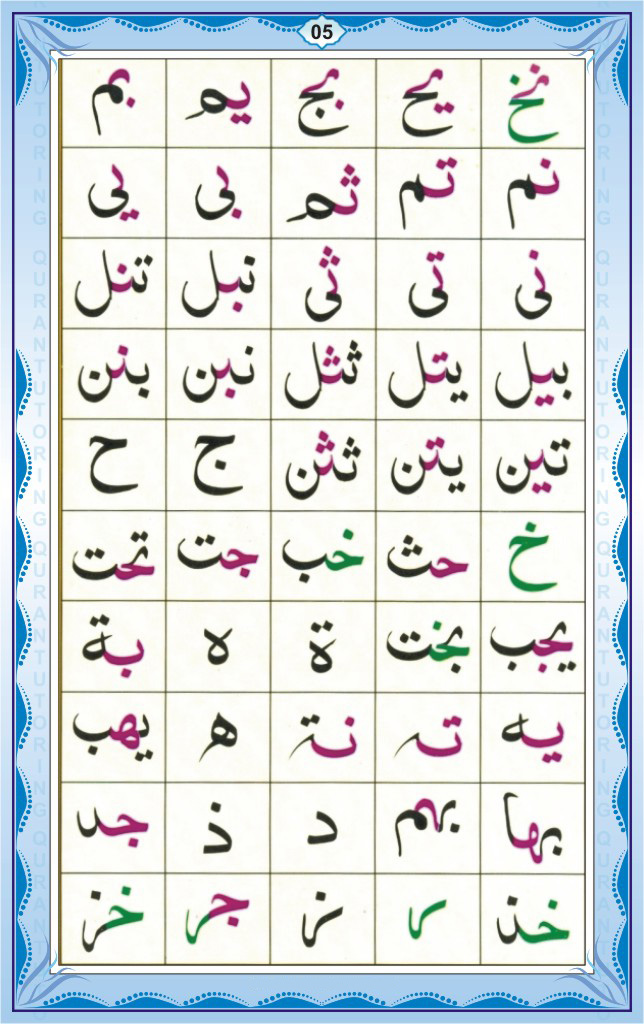 05
نخ یح بج یم بم
نم تم ثم بی یی
نی تی ثی نبل تنل
بیل یتل ثثل نبن بنن
تین یتن ثثن ج ح
خ حث خب جت تحت
یجب بخت ة ه بة
یه تہ نة ھ یھب
بھا بہم د ذ جد
خذ ر ز جر خز
QURAN TUTORING QURAN TUTORING QURAN TUTORING
QURAN TUTORING QURAN TUTORING QURAN TUTORING